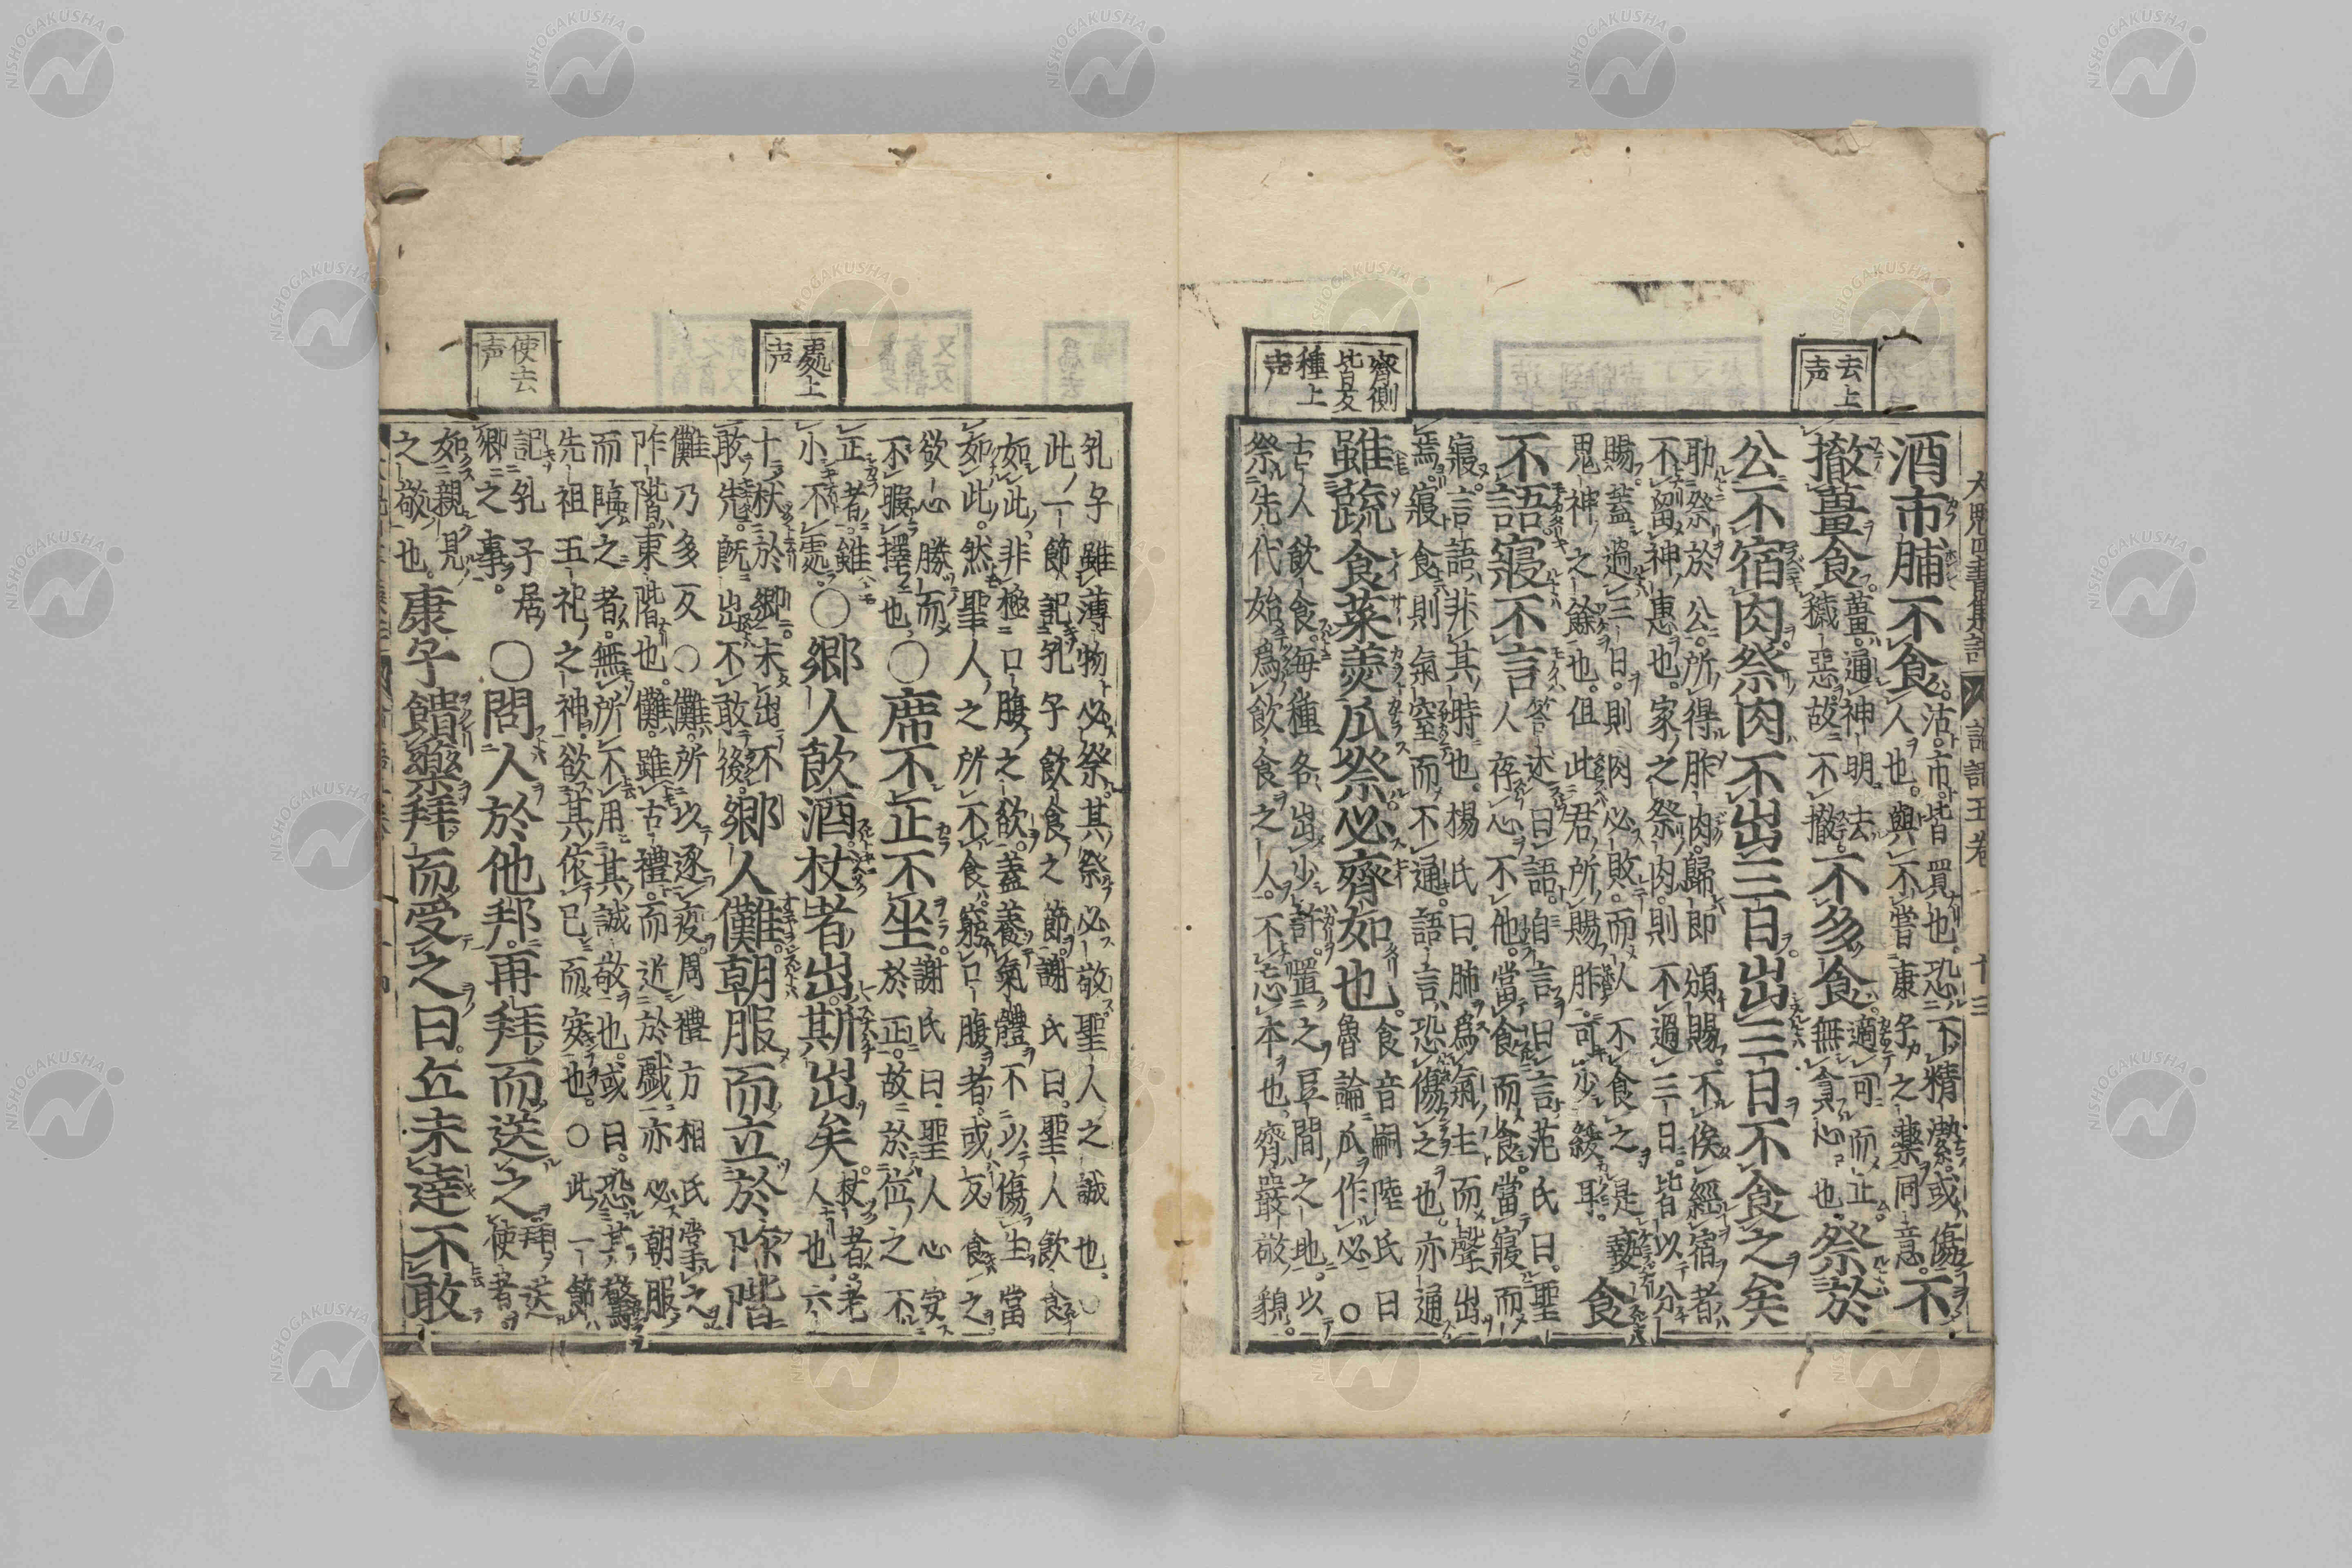 去上声
齊側皆反種上声
酒市脯不食沽市皆買也恐不精潔或傷人也與不嘗康子之藥同意不
撤薑食薑通神明去穢惡故不撤不多食適可而止無貪心也祭於
公不宿肉祭肉不出三日出三日不食之矣
助祭於公所得胙肉歸即頒賜不俟經宿者
不留神惠也家之祭肉則不過三日皆以分
賜蓋過三日則肉必敗而人不食之是褻
鬼神之餘也但此君所賜胙可少緩耳食
不語寢不言答述曰語自言曰言范氏曰聖人存心不他當食而食當寢而
寢言語非其時也楊氏曰肺爲氣主而聲出
焉寢食則氣窒而不通語言恐傷之也亦通
雖蔬食菜羮瓜祭必齊如也食音嗣陸氏曰魯論瓜作必○
古人飲食每種各出少許置之豆間之地以
祭先代始爲飲食之人不忘本也齊嚴敬貌
處上声
使去声
孔子雖薄物必祭其祭必敬聖人之誠也○
此一節記孔子飲食之節謝氏曰聖人飲食
如此非極口腹之欲蓋養氣體不以傷生當
如此然聖人之所不食窮口腹者或反食之
欲心勝而不暇擇也○席不正不坐謝氏曰聖人心安於正故於位之不
正者雖小不處○鄉人飲酒杖者出斯出矣杖者老人也六
十杖於鄉未出不敢先既出不敢後鄉人儺朝服而立於阼階
儺乃多反○儺所以逐疫周禮方相氏掌之
阼階東階也儺雖古禮而近於戲亦必朝服
而臨之者無所不用其誠敬也或曰恐其驚
先祖五祀之神欲其依己而安也○此一節
記孔子居鄉之事○問人於他邦再拜而送之拜送使者
如親見之敬也康子饋藥拜而受之曰丘未達不敢